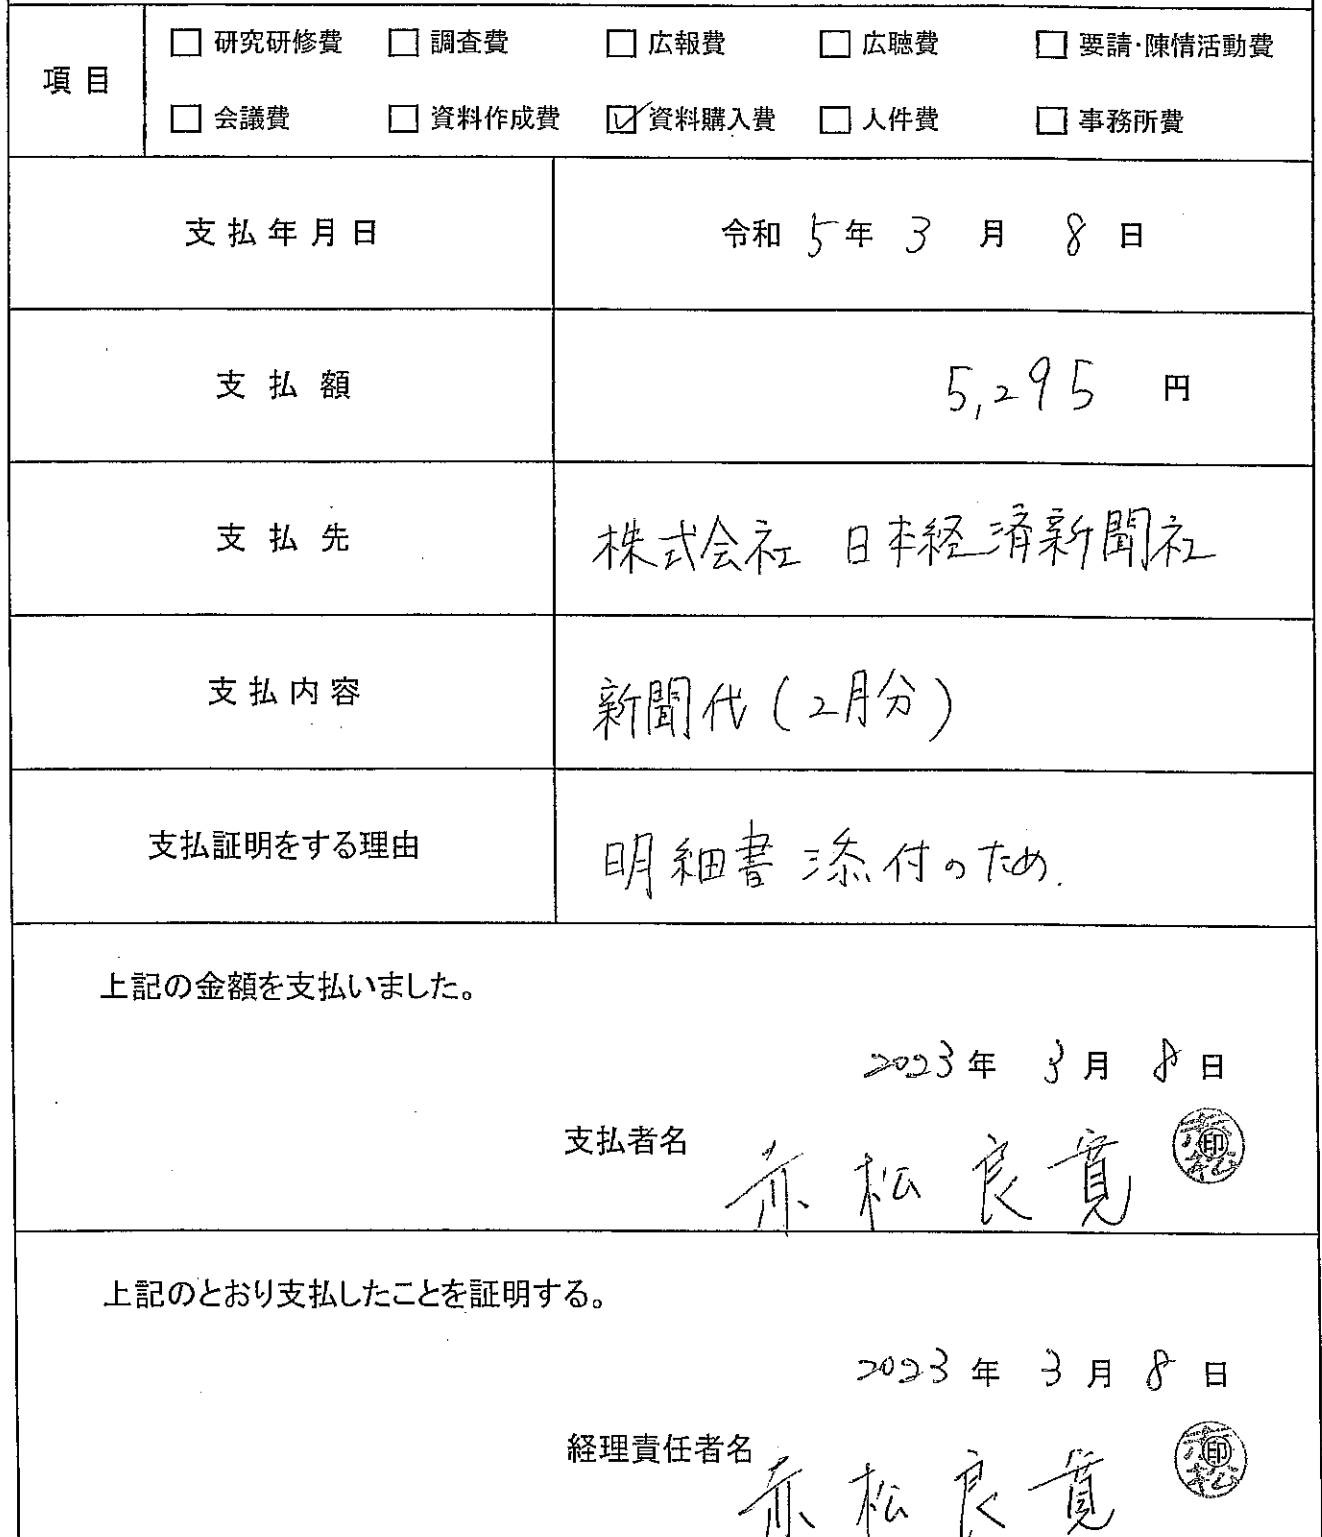 項目
□ 研究研修費 □ 調査費 □ 広報費 □ 広聴費 □ 要請・陳情活動費
□ 会議費 □ 資料作成費 ☑ 資料購入費 □ 人件費 □ 事務所費
支払年月日 令和 5年 3 月 8 日
支払額 5,295 円
支払先 株式会社 日本経済新聞社
支払内容 新聞代(2月分)
支払証明をする理由 明細書添付のため.
上記の金額を支払いました。
2023年 3月 8日
支払者名 赤松良寛 印
赤松
上記のとおり支払したことを証明する。
2023年 3月 8日
経理責任者名 赤松良寛 印
赤松